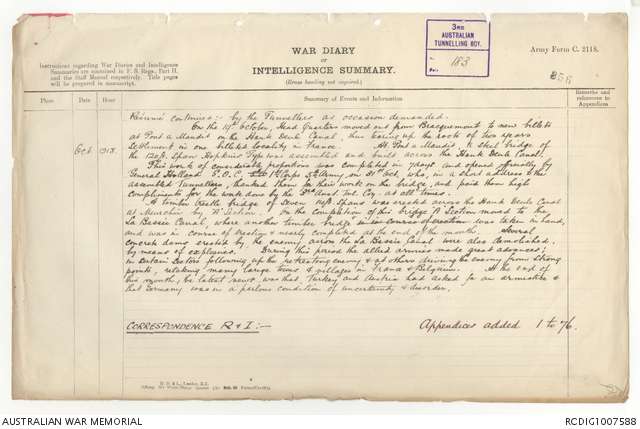 3RD
AUSTRALIAN
TUNNELLING COY.
No 183
Date
WAR DIARY
OR
INTELLIGENCE SUMMARY.
(Erase heading not required.)
Army Form C. 2118.
Instructions regarding War Diaries and Intelligence
Summaries are contained in F. S. Regs., Part II.
and the Staff Manual respectively. Title pages
will be prepared in manuscript.
Place Date Hour Summary of Events and Information Remarks and references to Appendices
continued :- by the Tunnellers as occasion demanded.
On the 19th October, Head Quarters moved out from Bracquemont to new billets
at Pont a Vendin on the Haute Deule Canal, thus tearing up the roots of two years
settlement in one billeted locality in France. At Pont a Vendin, a steel bridge of
the 120ft. span Hopkins Type was assembled and built across the Haute Deule Canal.
Oct. 1918. This work of considerable proportions was completed in days and opened officially by
General Holland G.O.C. 1st Corps 5th Army, on 31st Oct. who, in a short address to the
assembled Tunnellers, thanked them for their work on the bridge, and paid them high
compliments for the work done by the 3rd Aust. Tul. Coy. at all times.
A timber trestle bridge of seven spans was erected across the Haute Deule Canal
at Meurchin by Section. On the completion of this bridge Section moved to the
La Bassee Canal, where another timber bridge in course of erection was taken in hand,
and was in course of erection & nearly completed at the end of the month. Several
concrete dams erected by the enemy across the La Bassee Canal were also demolished
by means of explosives. During this period the allied armies made great advances;
in certain sectors following up the retreating enemy & at others driving the enemy from strong
points, retaking many large towns & villages in France & Belgium. At the end of
the month, the latest news was that Turkey and Austria had asked for an armistice &
that Germany was in a parlous condition of uncertainty & disorder.
CORRESPONDENCE R & I :- Appendices added 1 to 76.
AUSTRALIAN WAR MEMORIAL RCDIG1007588